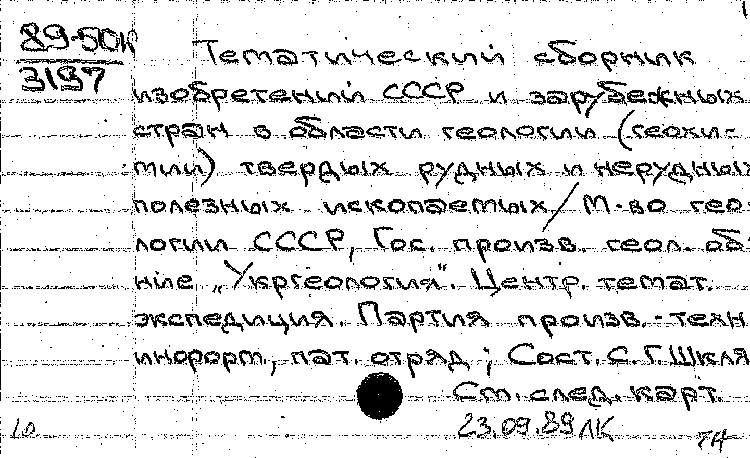 89-50к
3197
Тематический сборник
изобретений СССР и зарубежных
стран в области геологии (геохи-
мии) твердых рудных и нерудных
полезных ископаемых / М-во гео-
логии СССР, Гос. произв. геол. об-
ние „Укргеология“. Центр. темат.
экспедиция. Партия произв.-техн.
информ., пат. отряд ; Сост. С. Г. Шкля
См. след. карт.
23.09.89 ЛК
10